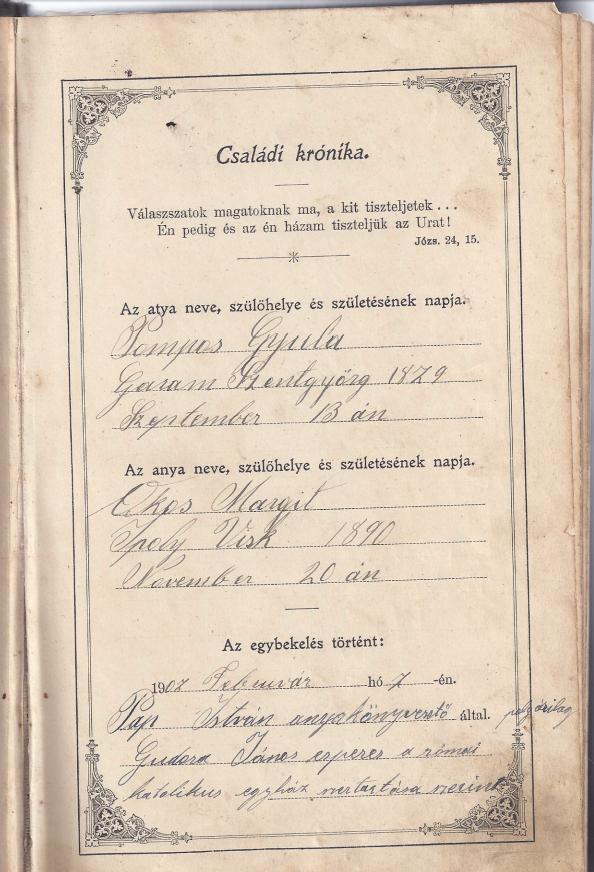 Családi krónika.
Válaszszatok magatoknak ma, a kit tiszteljetek . . .
Én pedig és az én házam tiszteljük az Urat!
Józs. 24, 15.
Az atya neve, szülőhelye és születésének napja.
Pompos Gyula
Garam Szentgyörg 1879
Szeptember 13 án
Az anya neve, szülőhelye és születésének napja.
Okos Margit
Ipoly Visk 1890
November 20 án
Az egybekelés történt:
1907 Február hó 7 -én.
Pap István anyakönyvvezető által. polgárilag
János esperes a római
katolikus egyház szertartása szerint